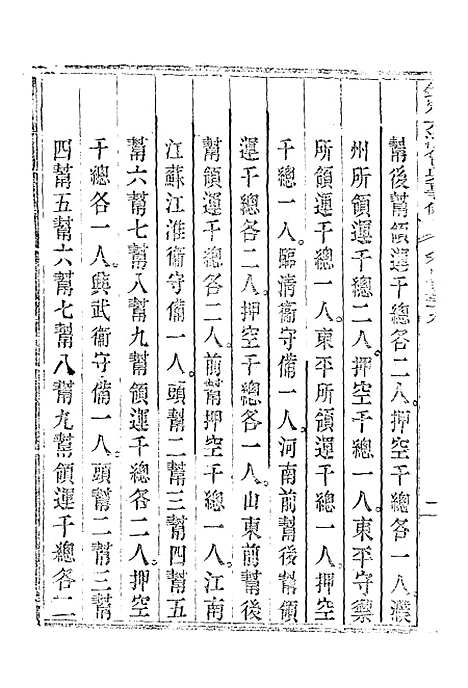 幫後幫領運千總各二人押空千總各一人濮
州所領運千總二人押空千總一人東平守禦
所領運千總一人東平所領運千總一人押空
千總一人臨清衞守備一人河南前幫後幫領
運千總各二人押空千總各一人山東前幫後
幫領運千總各二人前幫押空千總一人江南
江蘇江淮衞守備一人頭幫二幫三幫四幫五
幫六幫七幫八幫九幫領運千總各二人押空
千總各一人興武衞守備一人頭幫二幫三幫
四幫五幫六幫七幫八幫九幫領運千總各二